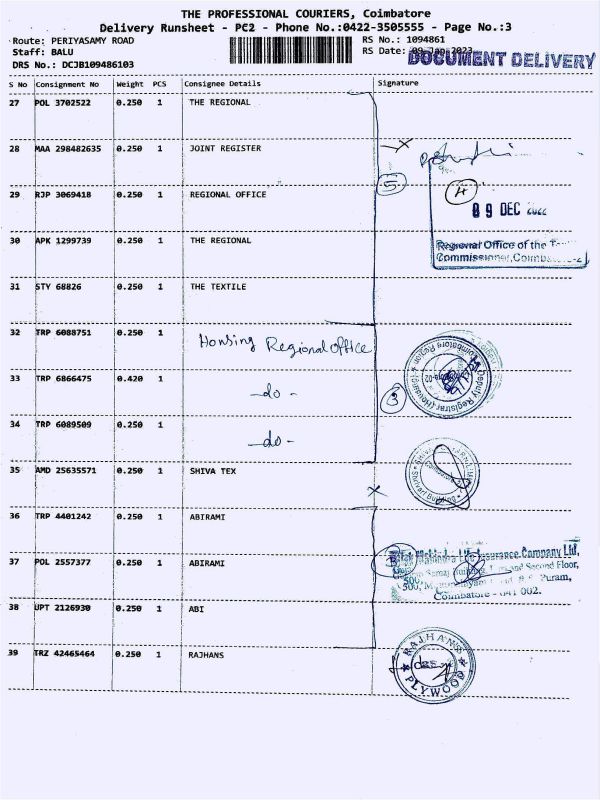 THE PROFESSIONAL COURIERS, Coimbatore
Delivery Runsheet - PC2 - Phone No.:0422-3505555 - Page No.:3
Route: PERIYASAMY ROAD
Staff: BALU
DRS No.: DCJB109486103
RS No.: 1094861
RS Date: 09 Jan 2023
DOCUMENT DELIVERY
S No Consignment No Weight PCS Consignee Details Signature
27 POL 3702522 0.250 1 THE REGIONAL
28 MAA 298482635 0.250 1 JOINT REGISTER
29 RJP 3069418 0.250 1 REGIONAL OFFICE
5
4
09 DEC 2022
30 APK 1299739 0.250 1 THE REGIONAL
Regional Office of the
Commissioner, Coimbatore-2
31 STY 68826 0.250 1 THE TEXTILE
32 TRP 6088751 0.250 1 Housing Regional office
33 TRP 6866475 0.420 1 -do-
3
Deputy Registrar (Housing)
Coimbatore Region
34 TRP 6089509 0.250 1 -do-
35 AMD 25635571 0.250 1 SHIVA TEX
36 TRP 4401242 0.250 1 ABIRAMI
37 POL 2557377 0.250 1 ABIRAMI
Insurance Company Ltd,
and Second Floor,
Puram,
Coimbatore - 641 002.
38 UPT 2126930 0.250 1 ABI
39 TRZ 42465464 0.250 1 RAJHANS
RAJHANS
PLYWOOD